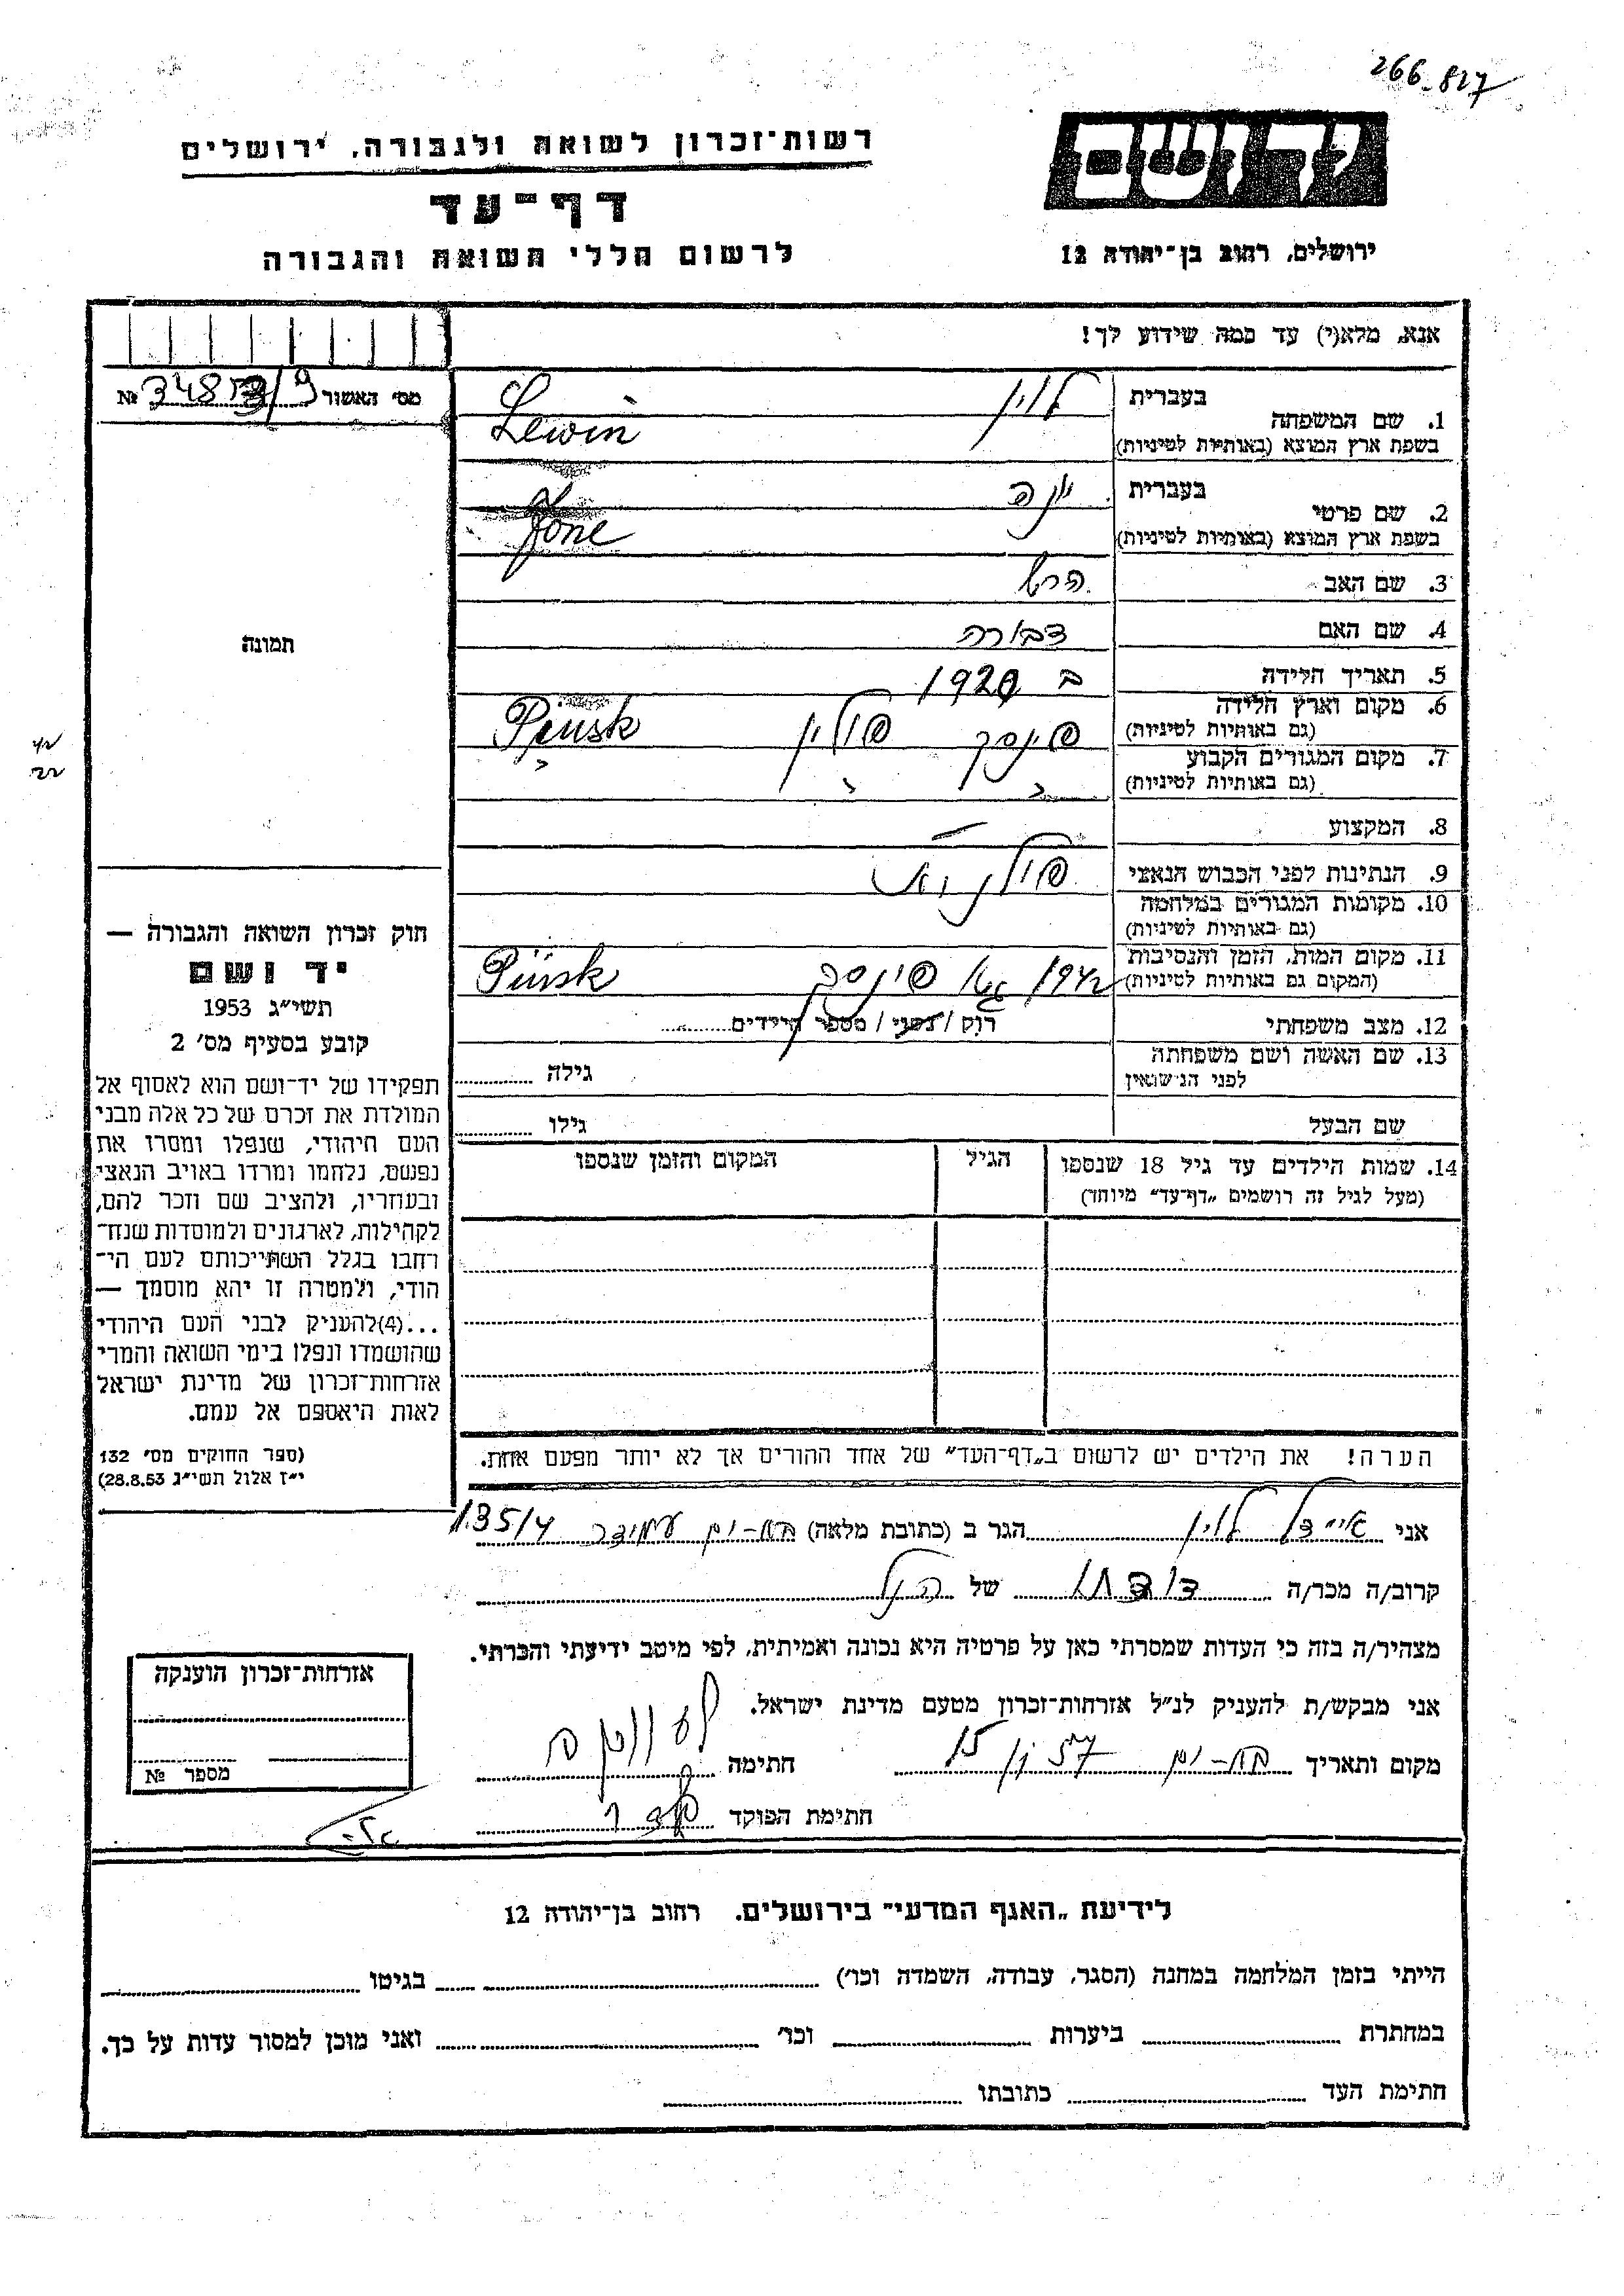 266-827
רשות־זכרון לשואה ולגבורה, ירושלים
דף־עד
לרשום חללי השואה והגבורה
יד ושם
ירושלים, רחוב בן־יהודה 12
אנא, מלא(י) עד כמה שידוע לך!
מס' האשור №
1. שם המשפחה
בעברית לוין
בשפת ארץ המוצא (באותיות לטיניות) Lewin
2. שם פרטי
בעברית יונה
בשפת ארץ המוצא (באותיות לטיניות) Jone
3. שם האב הרש
4. שם האם דבורה
5. תאריך הלידה ב 1920
6. מקום וארץ הלידה
(גם באותיות לטיניות) פינסק פולין Pinsk
7. מקום המגורים הקבוע
(גם באותיות לטיניות) " " "
8. המקצוע —
9. הנתינות לפני הכבוש הנאצי פולנית
10. מקומות המגורים במלחמה
(גם באותיות לטיניות)
11. מקום המות, הזמן והנסיבות
(המקום גם באותיות לטיניות) 1942 גטו פינסק Pinsk
12. מצב משפחתי רוק / נשוי / מספר הילדים
13. שם האשה ושם משפחתה
לפני הנישואין
גילה
שם הבעל
גילו
14. שמות הילדים עד גיל 18 שנספו
(מעל לגיל זה רושמים „דף־עד" מיוחד)
הגיל
המקום והזמן שנספו
הערה! את הילדים יש לרשום ב„דף־העד" של אחד ההורים אך לא יותר מפעם אחת.
תמונה
חוק זכרון השואה והגבורה —
יד ושם
תשי"ג 1953
קובע בסעיף מס' 2
תפקידו של יד־ושם הוא לאסוף אל
המולדת את זכרם של כל אלה מבני
העם היהודי, שנפלו ומסרו את
נפשם, נלחמו ומרדו באויב הנאצי
ובעוזריו, ולהציב שם וזכר להם,
לקהילות, לארגונים ולמוסדות שנח־
רבו בגלל השתייכותם לעם הי־
הודי, ולמטרה זו יהא מוסמך —
...(4)להעניק לבני העם היהודי
שהושמדו ונפלו בימי השואה והמרי
אזרחות־זכרון של מדינת ישראל
לאות היאספם אל עמם.
(ספר החוקים מס' 132
י"ז אלול תשי"ג 28.8.53)
אני איידל לוין הגר ב (כתובת מלאה) בת-ים עמידר 135/4
קרוב/ה מכר/ה דודתו של הנ"ל
מצהיר/ה בזה כי העדות שמסרתי כאן על פרטיה היא נכונה ואמיתית, לפי מיטב ידיעתי והכרתי.
אני מבקש/ת להעניק לנ"ל אזרחות־זכרון מטעם מדינת ישראל.
מקום ותאריך בת-ים חתימה
חתימת הפוקד
אזרחות־זכרון הוענקה
מספר №
לידיעת „האגף המדעי" בירושלים. רחוב בן־יהודה 12
הייתי בזמן המלחמה במחנה (הסגר, עבודה, השמדה וכו') בגיטו
במחתרת ביערות וכו' ואני מוכן למסור עדות על כך.
חתימת העד כתובתו